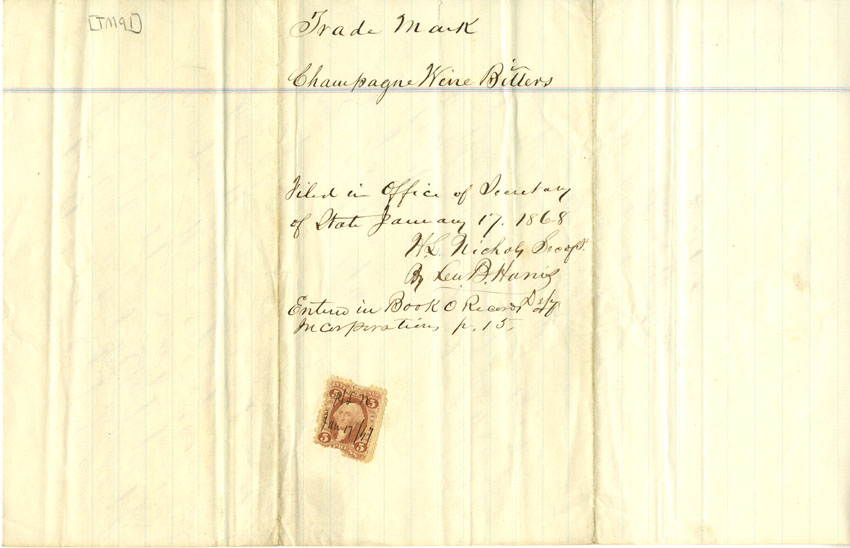 [TM91]
Trade Mark
Champagne Wine Bitters
Filed in Office of Secretary
of State January 17. 1868
H.L. Nichols Secy of St.
By Leu B. Harris
Depy
Entered in Book O Records of
Incorporations p. 15.
5 5
Jan 17
5 5